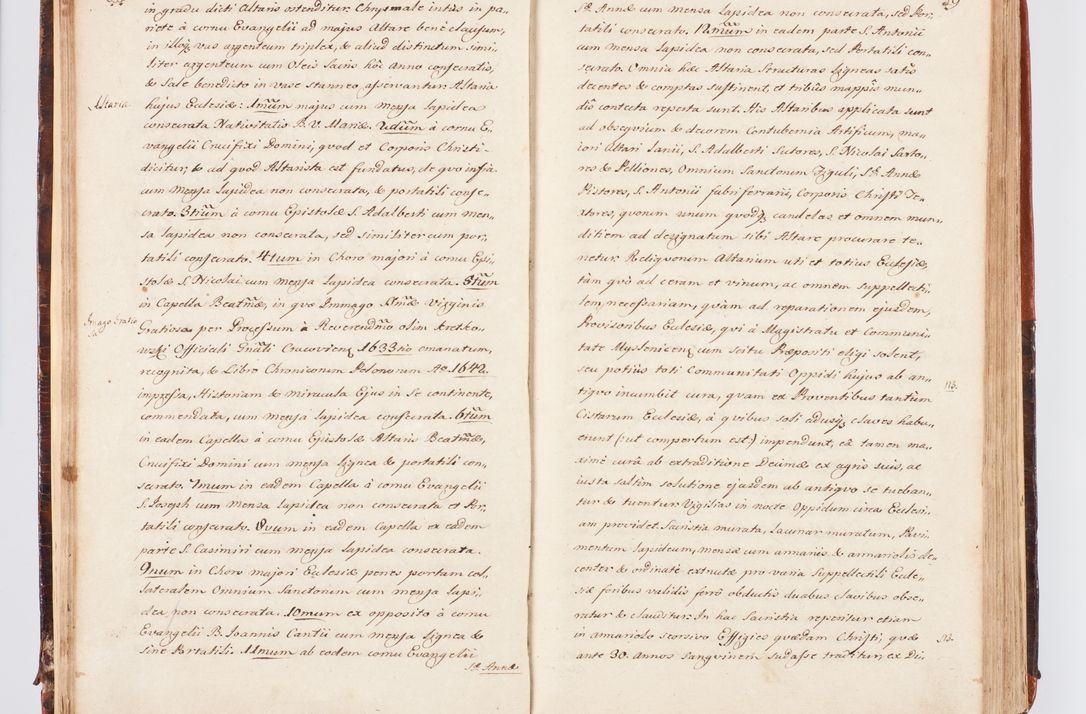 in gradu dicti Altaris ostenditur. Chrysmale intùs in pa„
riete à cornu Evangelii ad majus Altare benè clausum,
in illoq; vas argenteum triplex, & aliud distinctum simi„
liter argenteum cum Oleis Sacris hôc Anno consecratis,
& Sale benedicto in vase stanneo asservantur. Altaria
Altaria
hujus Ecclesiæ: 1mũm majus cum mensa lapidea
consecrata Nativitatis B. V. Mariæ. 2dũm à cornu E„
vangelii Crucifixi Domini, quod et Corporis Christi
dicitur, & ad quod Altarista est fundatus, de quo infrà.
cum mensa lapidea non consecrata, & portatili conse„
crato. 3tiũm à cornu Epistolæ S. Adalberti cum men„
sa lapidea non consecrata, sed similiter cum por„
tatili consecrato. 4tum in Choro majori à cornu Epi„
stolæ S. Nicolai cum mensa lapidea consecrata. 5tũm
in Capella Beatmæ, in qua Immago Stmæ Virginis
Imago Gratio
sa
Gratiosa per Processum à Reverendmo olim
Officiali Gnãli Cracovien; 1633tio emanatum,
recognita, & Libro Chronicorum Polonorum Ao 1642.
impressa, Historiam & miracula Ejus in se continente,
commendata, cum mensa lapidea consecrata. 6tũm
in eadem Capella à cornu Epistolæ Altaris Beatmæ,
Crucifixi Domini cum mensa lignea & portatili con„
secrato. 7mum in eadem Capella à cornu Evangelii
S. Joseph cum mensa lapidea non consecrata et Por„
tatili consecrato. 8vum in eadem Capella ex eadem
parte S. Casimiri cum mensa lapidea consecrata.
9num in Choro majori Ecclesiæ penes portam col„
lateralem Omnium Sanctorum cum mensa lapi„
dea non consecrata. 10mum ex opposito à cornu
Evangelii B. Joannis Cantii cum mensa lignea &
sine Portatili. 11mum ab eodem cornu Evangelii
S. Annæ
S. Annæ cum mensa lapidea non consecrata, sed Por„
tatili consecrato. 12mũm in eadem parte S. Antonii
cum mensa lapidea non consecrata, sed Portatili con„
secrato. Omnia hæc Altaria structuras ligneas satis
decentes & comptas sustinent, et tribûs mappis mun„
dis contecta reperta sunt. His Altaribus applicata sunt
ad obsequium & decorem Contubernia Artificum, ma„
iori Altari Lanii, S. Adalberti Sutores, S. Nicolai Sarto„
res & Pelliones, Omnium Sanctorum Figuli, S. Annæ
Pistores, S. Antonii fabri ferrarii, Corporis Christi Te„
xtores, quorum unum quodq; candelas et omnem mun„
ditiem ad designatum sibi Altare procurare te„
netur. Reliquorum Altarium uti et totius Ecclesiæ,
tàm quò ad ceram et vinum, ac omnem suppellecti„
lem, necessariam, quàm ad reparationem ejusdem,
Provisoribus Ecclesiæ, qui à Magistratu et Communi„
tate Myslenicen; cum scitu Præpositi eligi solent,
seu potiùs toti Communitati Oppidi hujus ab an„
tiquo incumbit cura, quam ex Proventibus tantùm
Cistarum Ecclesiæ, à quibus soli adusq; claves habu„
erunt (: ut compertum est :) impendunt, ea tamen ma„
ximè curâ ab extraditione Decimæ ex agris suis, ac
iusta saltim solutione ejusdem ab antiquo se tueban„
tur & tuentur. Vigilias in nocte Oppidum circa Ecclesi„
am providet. Sacristia murata, lacunar muratum, Pavi„
mentum lapideum, mensæ cum armariis & armariolis de„
center & ordinatè extructæ pro varia Suppellectili Eccle„
siæ foribus validis ferrô obductis duabus clavibus obse„
ratur & clauditur. In hac Sacristia reperitur etiam
in armariolo seorsivo Effigies quædam Christi, quæ
ante 30. Annos Sanguinem sudasse traditur, ex Di„